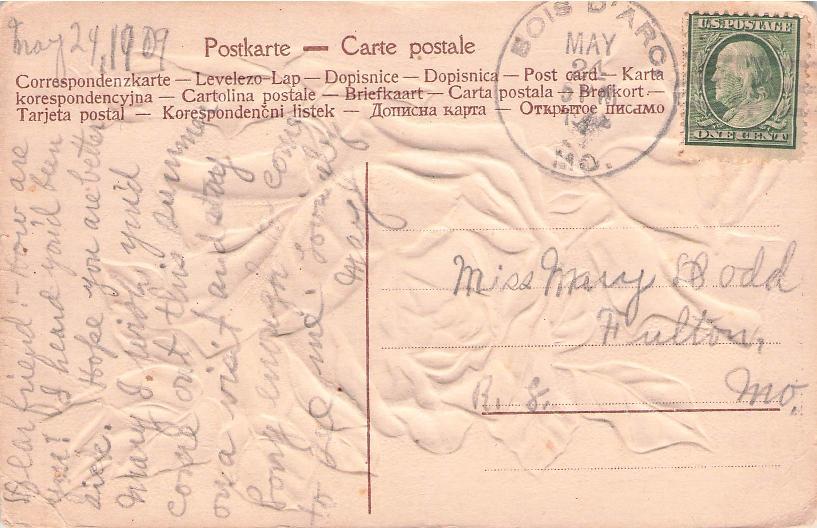 May 24, 1909
Postkarte — Carte postale
Correspondenzkarte — Levelezo-Lap — Dopisnice — Dopisnica — Post card — Karta
korespondencyjna — Cartolina postale — Briefkaart — Carta postala — Brefkort —
Tarjeta postal — Korespondenčni listek — Дописна карта — Открытое писмо
BOIS D'ARC
MAY
24
MO.
U.S. POSTAGE
ONE CENT
Dear friend:- How are
you? I heard you'd been
sick. Hope you are better
Mary I wish you'd
come out this summer
on a visit and stay
long enough to come
to see me. Lovingly
Miss Mary Dodd
Fulton,
Mo.
R. F.